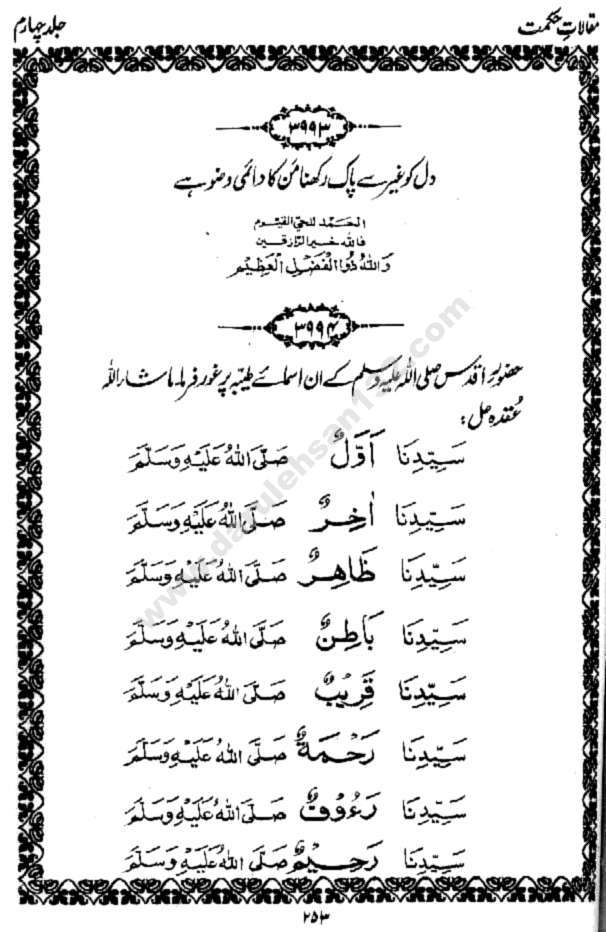 مقالاتِ حکمت
جلد چہارم
۳۹۹۳
دل کو غیر سے پاک رکھنا مَن کا دائمی وضو ہے
الحَمد للحیّ القیّوم
فاللہ خیر الرّازقین
وَاللہُ ذُوالْفَضْلِ الْعَظِیْمِ
۳۹۹۴
حضورِ اقدس صلی اللہ علیہ وسلم کے ان اسمائے طیّبہ پر غور فرما۔ ماشاء اللہ
عُقدہ حل:
سَیِّدِنَا اَوَّلٌ صَلَّی اللہُ عَلَیْہِ وَسَلَّمَ
سَیِّدِنَا اٰخِرٌ صَلَّی اللہُ عَلَیْہِ وَسَلَّمَ
سَیِّدِنَا ظَاھِرٌ صَلَّی اللہُ عَلَیْہِ وَسَلَّمَ
سَیِّدِنَا بَاطِنٌ صَلَّی اللہُ عَلَیْہِ وَسَلَّمَ
سَیِّدِنَا قَرِیْبٌ صَلَّی اللہُ عَلَیْہِ وَسَلَّمَ
سَیِّدِنَا رَحْمَةٌ صَلَّی اللہُ عَلَیْہِ وَسَلَّمَ
سَیِّدِنَا رَءُوْفٌ صَلَّی اللہُ عَلَیْہِ وَسَلَّمَ
سَیِّدِنَا رَحِیْمٌ صَلَّی اللہُ عَلَیْہِ وَسَلَّمَ
۲۵۳